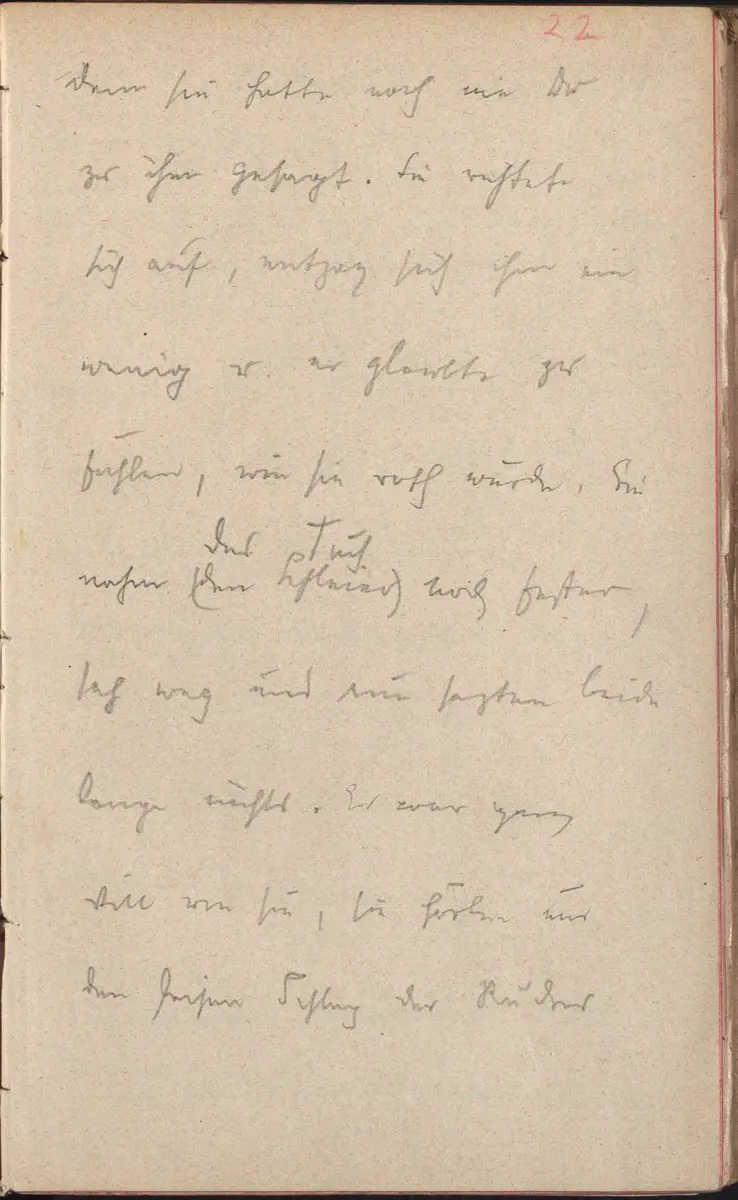 22
denn sie hatte noch nie Du
zu ihm gesagt. Sie richtete
sich auf, entzog sich ihm ein
wenig u. er glaubte zu
fühlen, wie sie roth wurde. Sie
das Tuch
nahm (den Schleier) noch fester,
sah weg und nun sagten beide
lange nichts. Es war ganz
still um sie, sie hörten nur
den leisen Schlag der Ruder